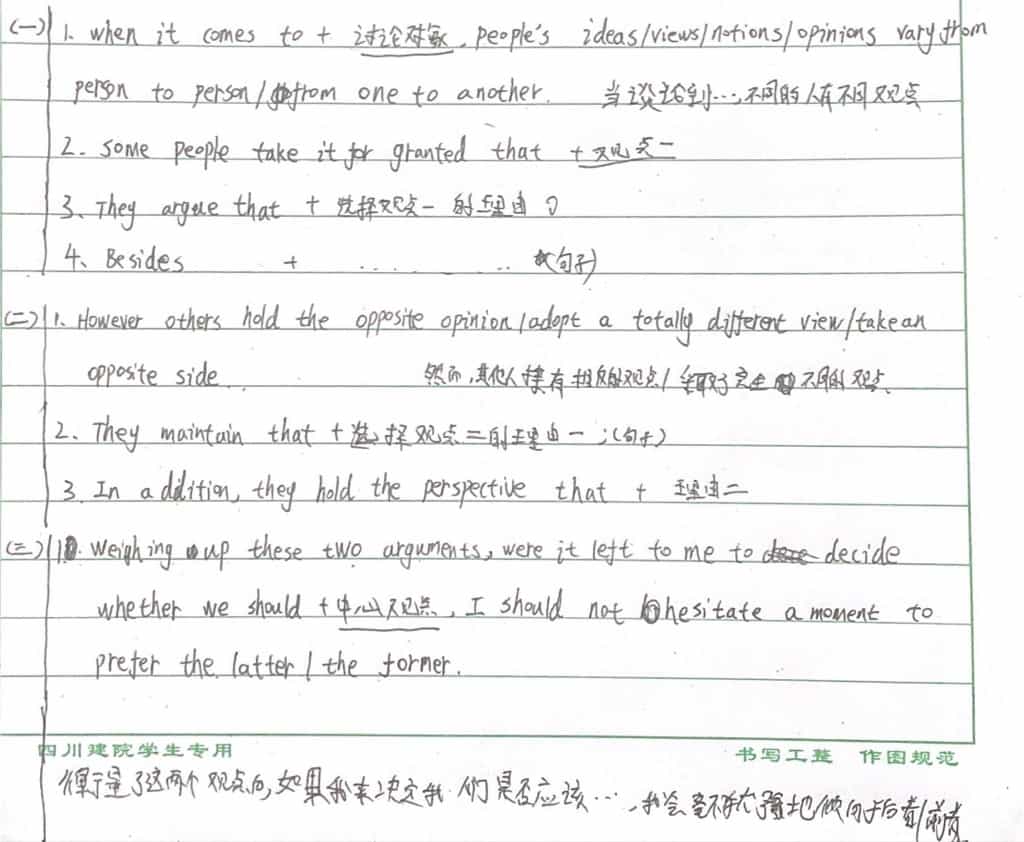 (一) 1. when it comes to + 讨论对象, people's ideas/views/notions/opinions vary from
person to person/from one to another. 当谈论到…,不同的人有不同观点
2. Some people take it for granted that + 观点一
3. They argue that + 选择观点一的理由
4. Besides + ............ (句子)
(二) 1. However others hold the opposite opinion/adopt a totally different view/take an
opposite side. 然而,其他人持有相反的观点/采取了完全不同的观点.
2. They maintain that + 选择观点二的理由一;(句子)
3. In addition, they hold the perspective that + 理由二
(三) 1. Weighing up these two arguments, were it left to me to decide
whether we should + 中心观点, I should not hesitate a moment to
prefer the latter/the former.
四川建院学生专用 书写工整 作图规范
衡量了这两个观点后,如果我来决定我们是否应该…,我会毫不犹豫地倾向于后者/前者